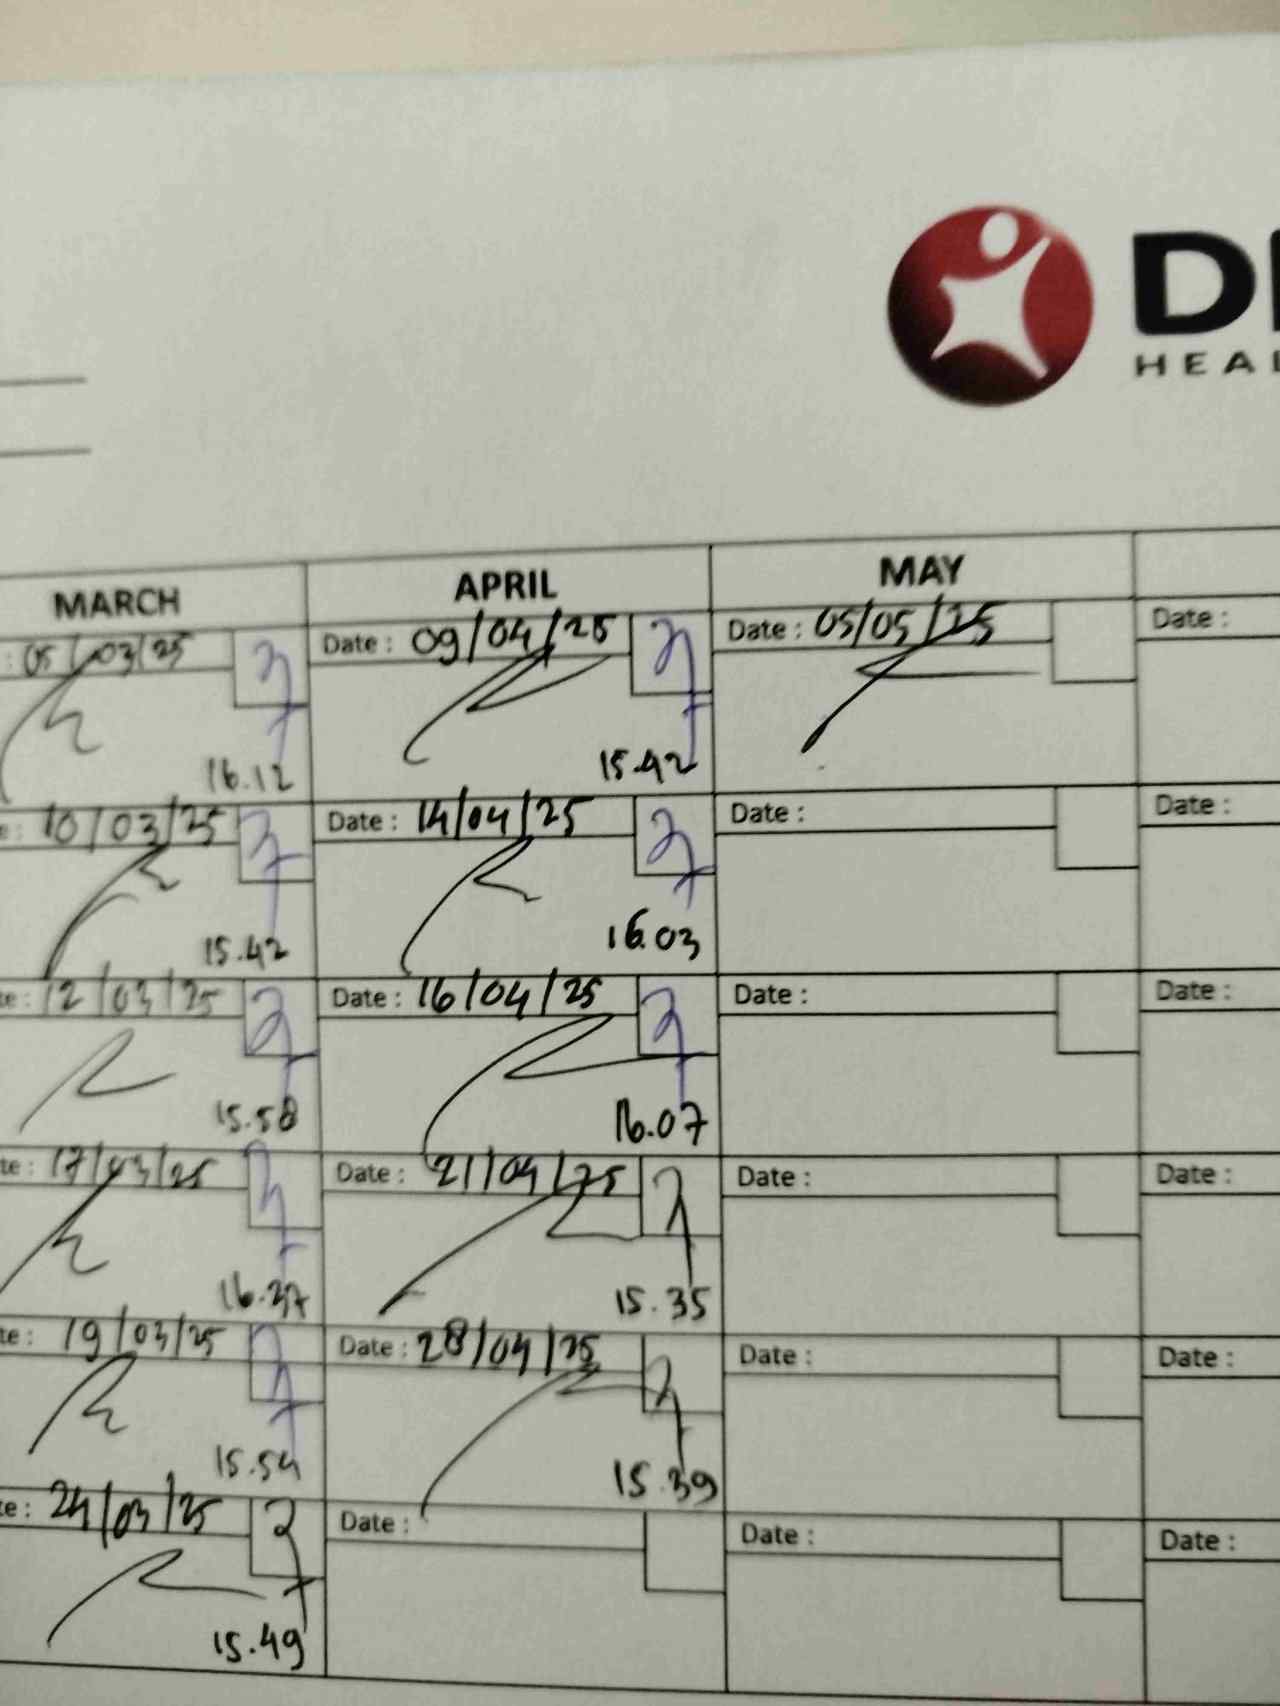 D
HEAL
MARCH APRIL MAY
: 05/03/25 Date : 09/04/25 Date : 05/05/25 Date :
16.12 15.42
e: 10/03/25 Date : 14/04/25 Date : Date :
15.42 16.03
te: 12/03/25 Date : 16/04/25 Date : Date :
15.58 16.07
te: 17/03/25 Date : 21/04/25 Date : Date :
16.37 15.35
te: 19/03/25 Date : 28/04/25 Date : Date :
15.54 15.39
te: 24/03/25 Date : Date : Date :
15.49